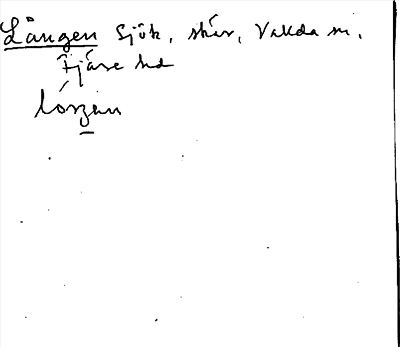 Lången Sjök, skär, Valda sn,
Fjäre hd
lóŋən